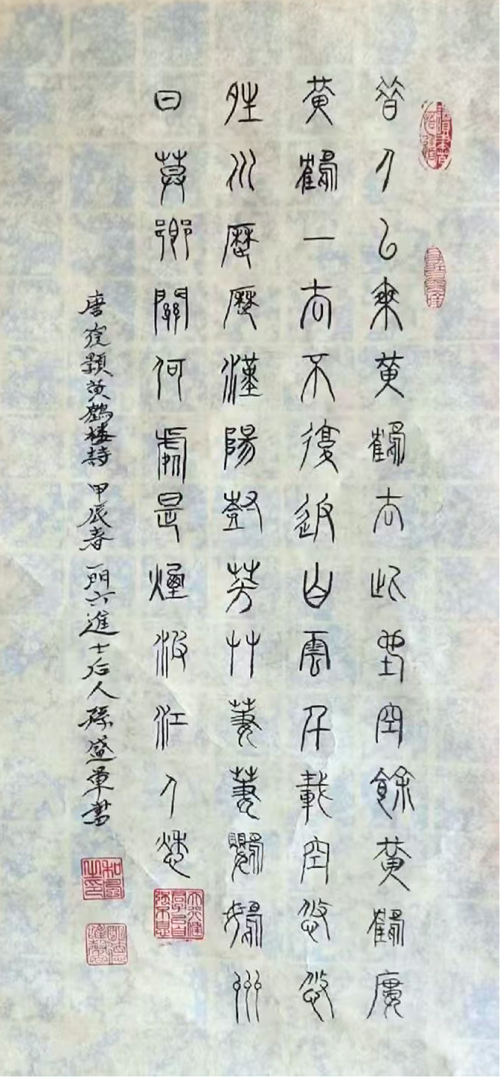 昔人已乘黄鶴去此地空餘黄鶴廔
黄鶴一去不復返白雲千載空悠悠
夝川歷歷漢陽尌芳艸萋萋鸚鵡州
日莫鄉關何處是煙波江人愁
唐崔顥黄鶴楼詩 甲辰春 一門六進士后人孫盛書